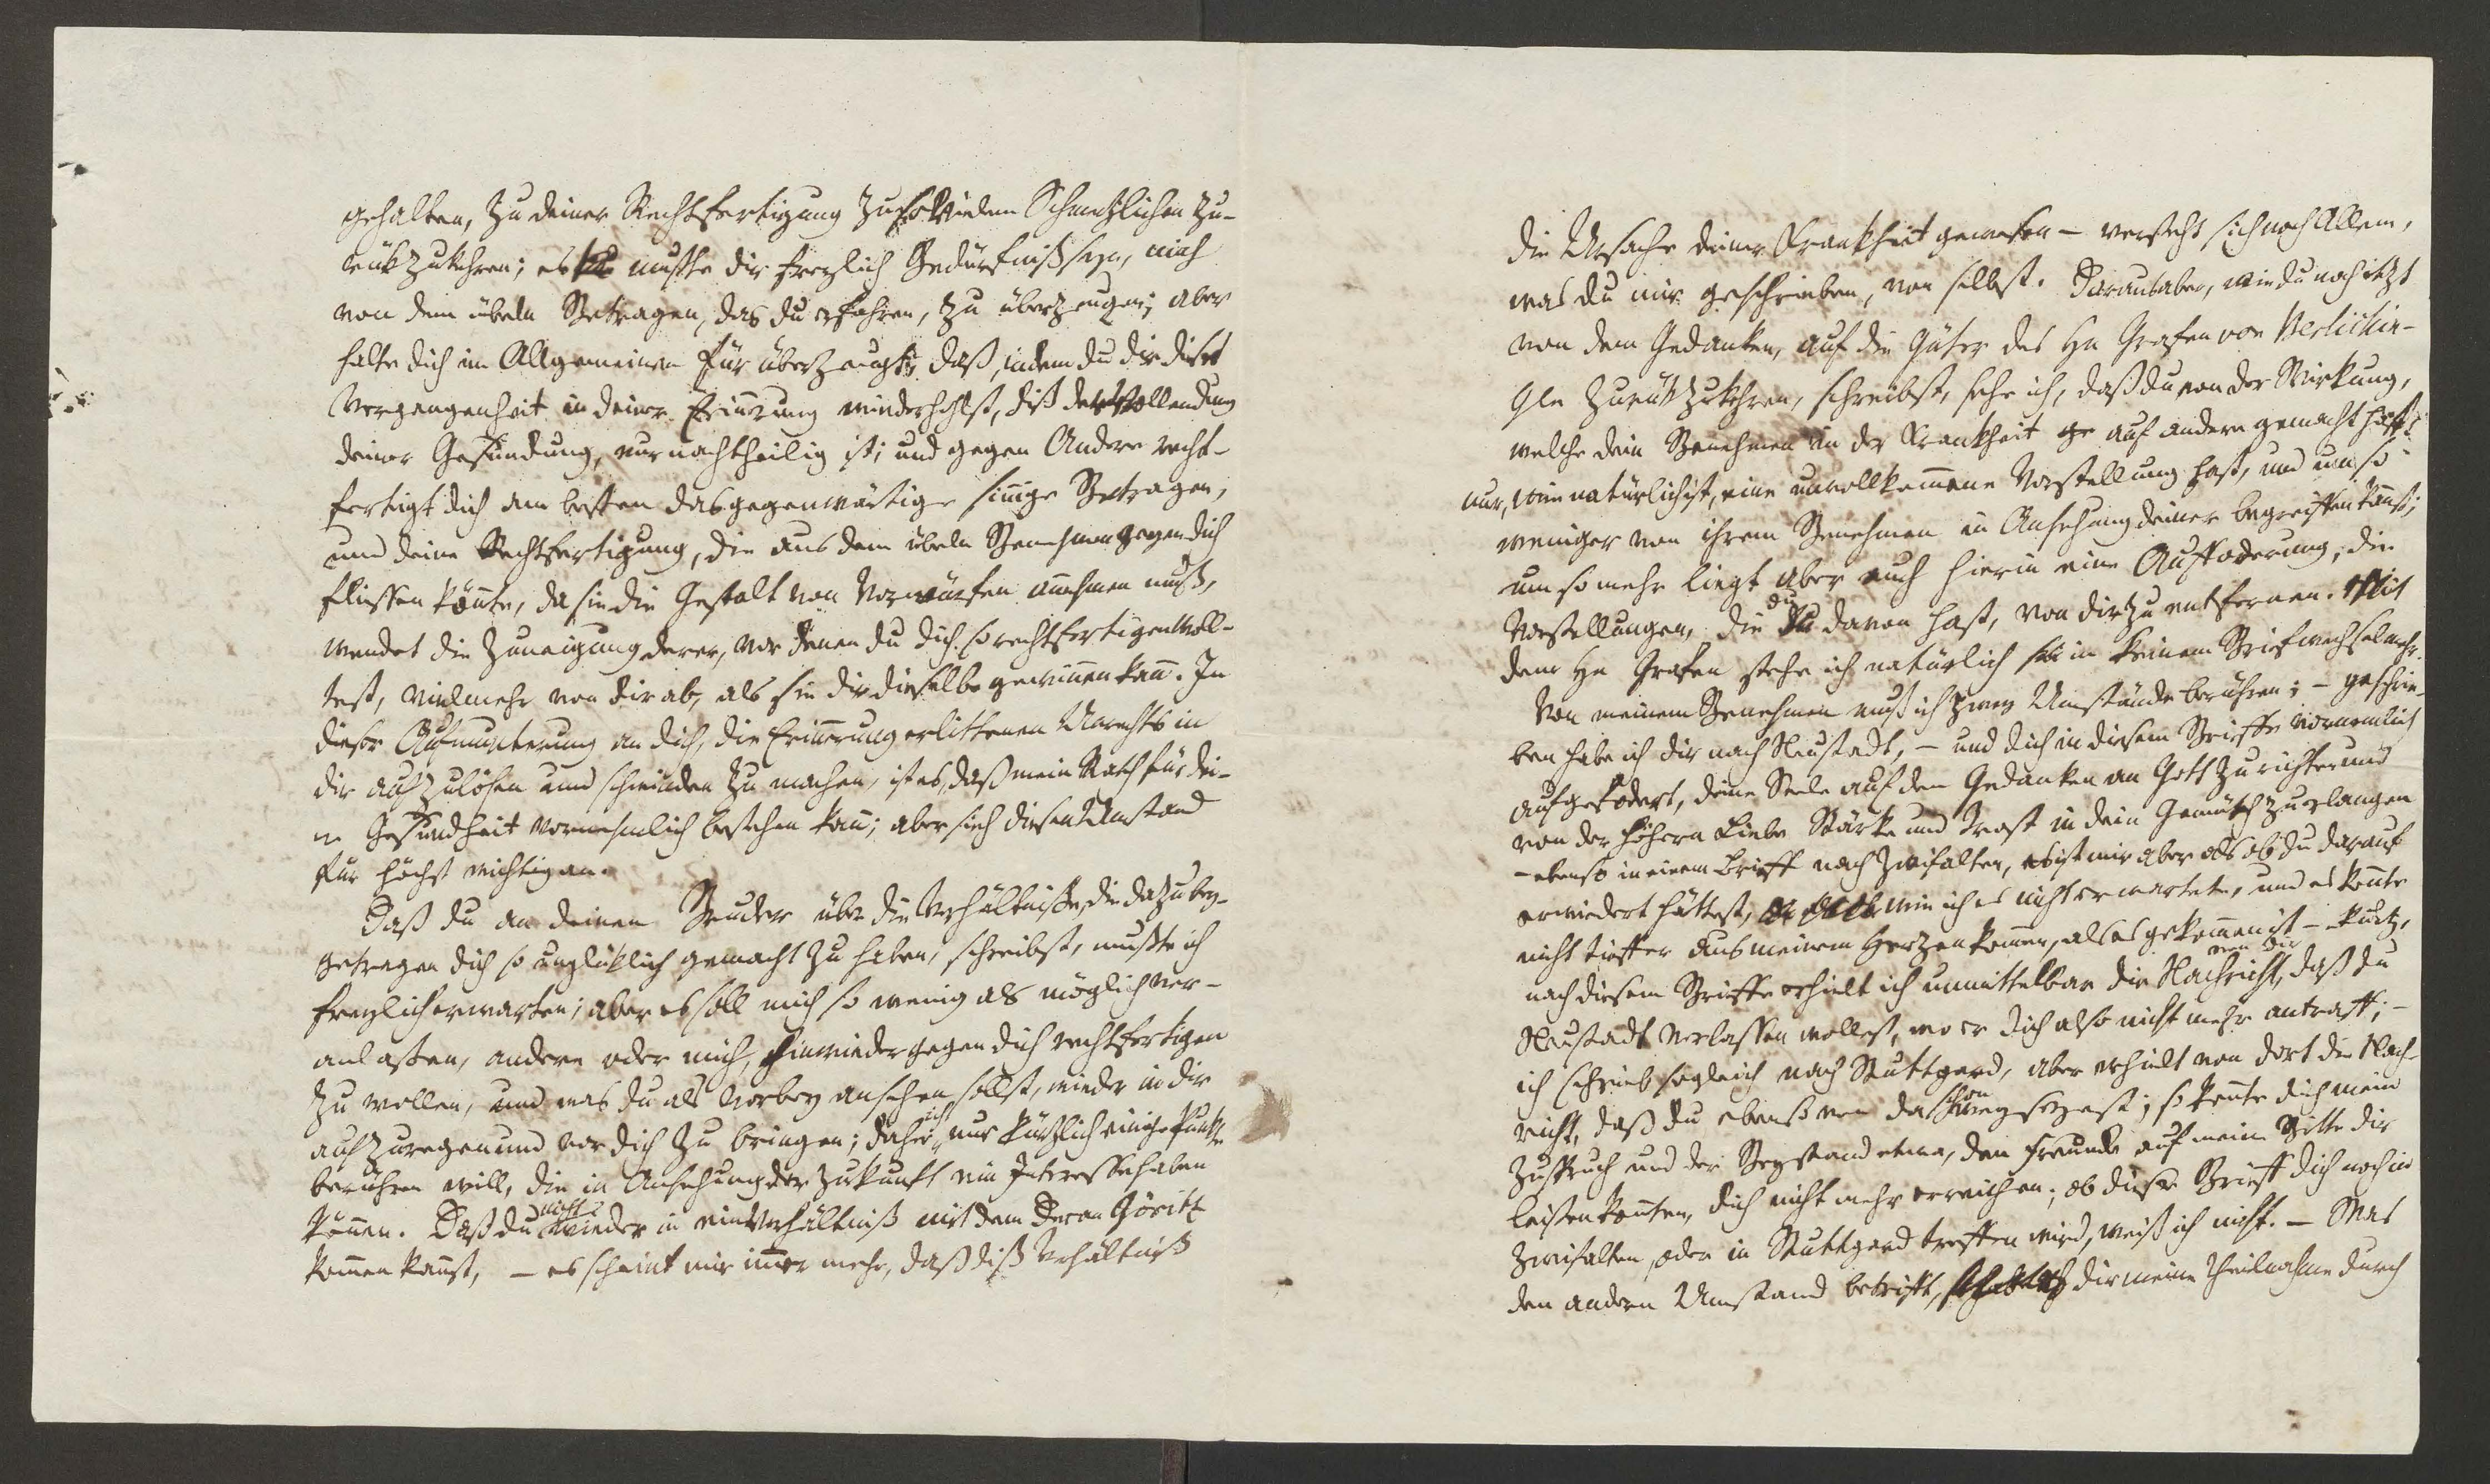 gehalten, zu deiner Rechtfertigung zu so vielem Schmerzlichen zu-
rükzukehren; es mußte dir freylich Bedürfniß seyn, mich
von dem übeln Betragen, das du erfahren, zu überzeugen; aber
halte dich im Allgemeinen für überzeugt, daß, indem du dir diese
Vergangenheit in deiner Erinnerung wiederhohlst, diß der Vollendung
deiner Gesundung, nur nachtheilig ist; und gegen Andere recht-
fertigt dich am besten das gegenwärtige sinnige Betragen,
und deine Rechtfertigung, die aus dem übeln Benehmen gegen dich
fliessen könnte, da sie die Gestalt von Vorwürfen annehmen muß,
wendet die Zuneigung derer, vor denen du dich so rechtfertigen woll-
test, vielmehr von dir ab, als sie dir dieselbe gewinnen kann. In
dieser Aufmunterung an dich, die Erinnerung erlittenen Unrechts in
dir aufzulösen und schwinden zu machen, ist es, daß mein Rath für dei-
ne Gesundheit vornehmlich bestehen kann; aber sieh diesen Umstand
für höchst wichtig an.
Daß du an deinen Bruder über die Verhältnisse, die dazu bey-
getragen dich so unglüklich gemacht zu haben, schreibst, mußte ich
freylich erwarten; aber es soll mich so wenig als möglich ver-
anlaßen, andere oder mich, hinwieder gegen dich rechtfertigen
zu wollen, und was du als vorbey ansehen sollst, wieder in dir
aufzuregen und vor dich zu bringen; daher ich nur kürzlich einige Punkte
berühren will, die in Ansehung der Zukunft ein Interesse haben
können. Daß du nicht wieder in ein Verhältniß mit dem Decan Göritz
kommen kannst, – es scheint mir immer mehr, daß diß Verhältniß
die Ursache deiner Krankheit gewesen – versteht sich nach Allem,
was du mir geschrieben, von selbst. Daraus aber, wie du noch itzt
von dem Gedanken, auf die Güter des Hn Grafen von Berlichin-
gen zurükzukehren, schreibst, sehe ich, daß du von der Wirkung,
welche dein Benehmen in der Krankheit auf andere gemacht hat,
nur, wie natürlich ist, eine unvollkommene Vorstellung hast, und um so
weniger von ihrem Benehmen in Ansehung deiner begreiffen kannst;
um so mehr liegt aber auch hierin eine Aufforderung, die
Vorstellungen, die du davon hast, von dir zu entfernen. Mit
dem Hn Grafen stehe ich natürlich in keinem Briefwechsel mehr.
Von meinem Benehmen muß ich zwey Umstände berühren; – geschrie-
ben habe ich dir nach Neustadt, – und dich in diesem Brieffe vornemlich
aufgefodert, deine Seele auf den Gedanken an Gott zu richten und
von der höhern Liebe Stärke und Trost in dein Gemüth zu erlangen
– ebenso in einem Brieff nach Zwifalten, es ist mir aber als ob du darauf
erwiedert hättest, wie ich es nicht erwartete, und es konnte
nicht tieffer aus meinem Herzen kommen, als es gekommen ist – kurtz,
nach diesem Brieffe erhielt ich unmittelbar die Nachricht von dir, daß du
Neustadt verlassen wollest, wo er dich also nicht mehr antraff; –
ich schrieb sogleich nach Stuttgard, aber erhielt von dort die Nach-
richt, daß du ebenso von da schon weg seyest; so konnte dich mein
Zuspruch und der Beystand etwa, den Freunde auf meine Bitte dir
leisten konnten, dich nicht mehr erreichen; ob dieser Brieff dich noch in
Zwifalten, oder in Stuttgard treffen wird, weiß ich nicht. – Was
den andern Umstand betrifft, dir meine Theilnahme durch